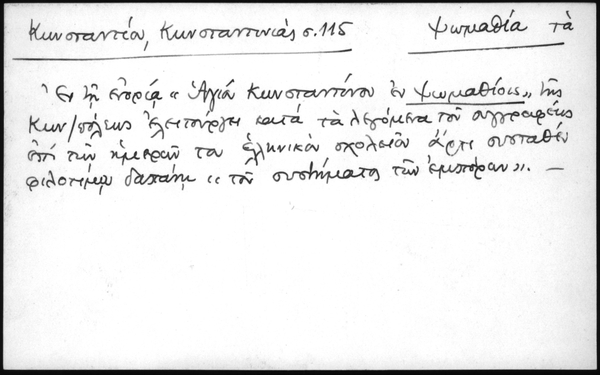 Κωνσταντίου, Κωνσταντινιάς σ. 115 Ψωμαθία τὰ
Ἐν τῇ ἐνορίᾳ «Ἁγίου Κωνσταντίνου ἐν Ψωμαθίοις», τῆς
Κων/πόλεως ἐλειτούργει κατὰ τὰ λεγόμενα τοῦ συγγραφέως
ἐπὶ τῶν ἡμερῶν του ἑλληνικὸν σχολεῖον ἄρτι συσταθὲν
φιλοτίμῳ δαπάνῃ «τοῦ συστήματος τῶν ἐμπόρων». —